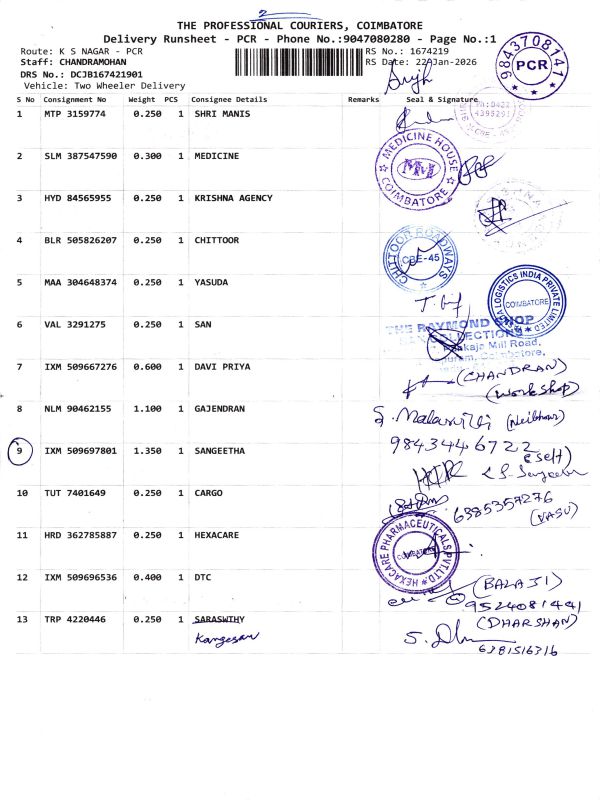 2
THE PROFESSIONAL COURIERS, COIMBATORE
Delivery Runsheet - PCR - Phone No.:9047080280 - Page No.:1
Route: K S NAGAR - PCR
RS No.: 1674219
Staff: CHANDRAMOHAN
RS Date: 22-Jan-2026
DRS No.: DCJB167421901
Vehicle: Two Wheeler Delivery
9843708141
PCR
S No Consignment No Weight PCS Consignee Details Remarks Seal & Signature
1 MTP 3159774 0.250 1 SHRI MANIS
2 SLM 387547590 0.300 1 MEDICINE
MEDICINE HOUSE
MM
COIMBATORE
3 HYD 84565955 0.250 1 KRISHNA AGENCY
4 BLR 505826207 0.250 1 CHITTOOR
CHITTOOR ROADWAYS
CBE-45
5 MAA 304648374 0.250 1 YASUDA
LOGISTICS INDIA PRIVATE LIMITED
COIMBATORE
6 VAL 3291275 0.250 1 SAN
THE RAYMOND SHOP
COLLECTIONS
Mill Road,
Coimbatore.
7 IXM 509667276 0.600 1 DAVI PRIYA
(CHANDRAN)
(WORKSHOP)
8 NLM 90462155 1.100 1 GAJENDRAN
9 IXM 509697801 1.350 1 SANGEETHA
9843446722
(self)
10 TUT 7401649 0.250 1 CARGO
6385357276
(VASU)
11 HRD 362785887 0.250 1 HEXACARE
HEXACARE PHARMACEUTICALS PVT.LTD
12 IXM 509696536 0.400 1 DTC
(BALAJI)
9524081441
13 TRP 4220446 0.250 1 SARASWTHY
(DHARSHAN)
Kangesan
6381516316